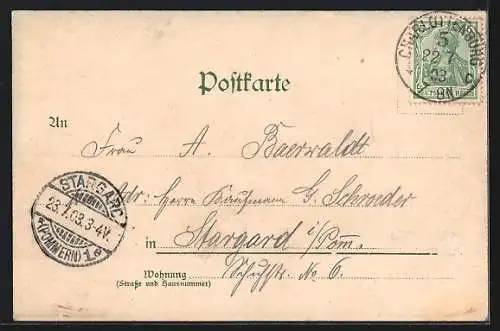 CHARLOTTENBURG
5
22 7
03
8N
c
Postkarte
An
Frau A. Baerwaldt
Adr: Herrn Kaufmann G. Schroeder
STARGARD
23.7.03.3-4N.
(POMMERN) 1.
in Stargard i/Pom.
Wohnung
(Straße und Hausnummer)
Schuhstr. No 6.